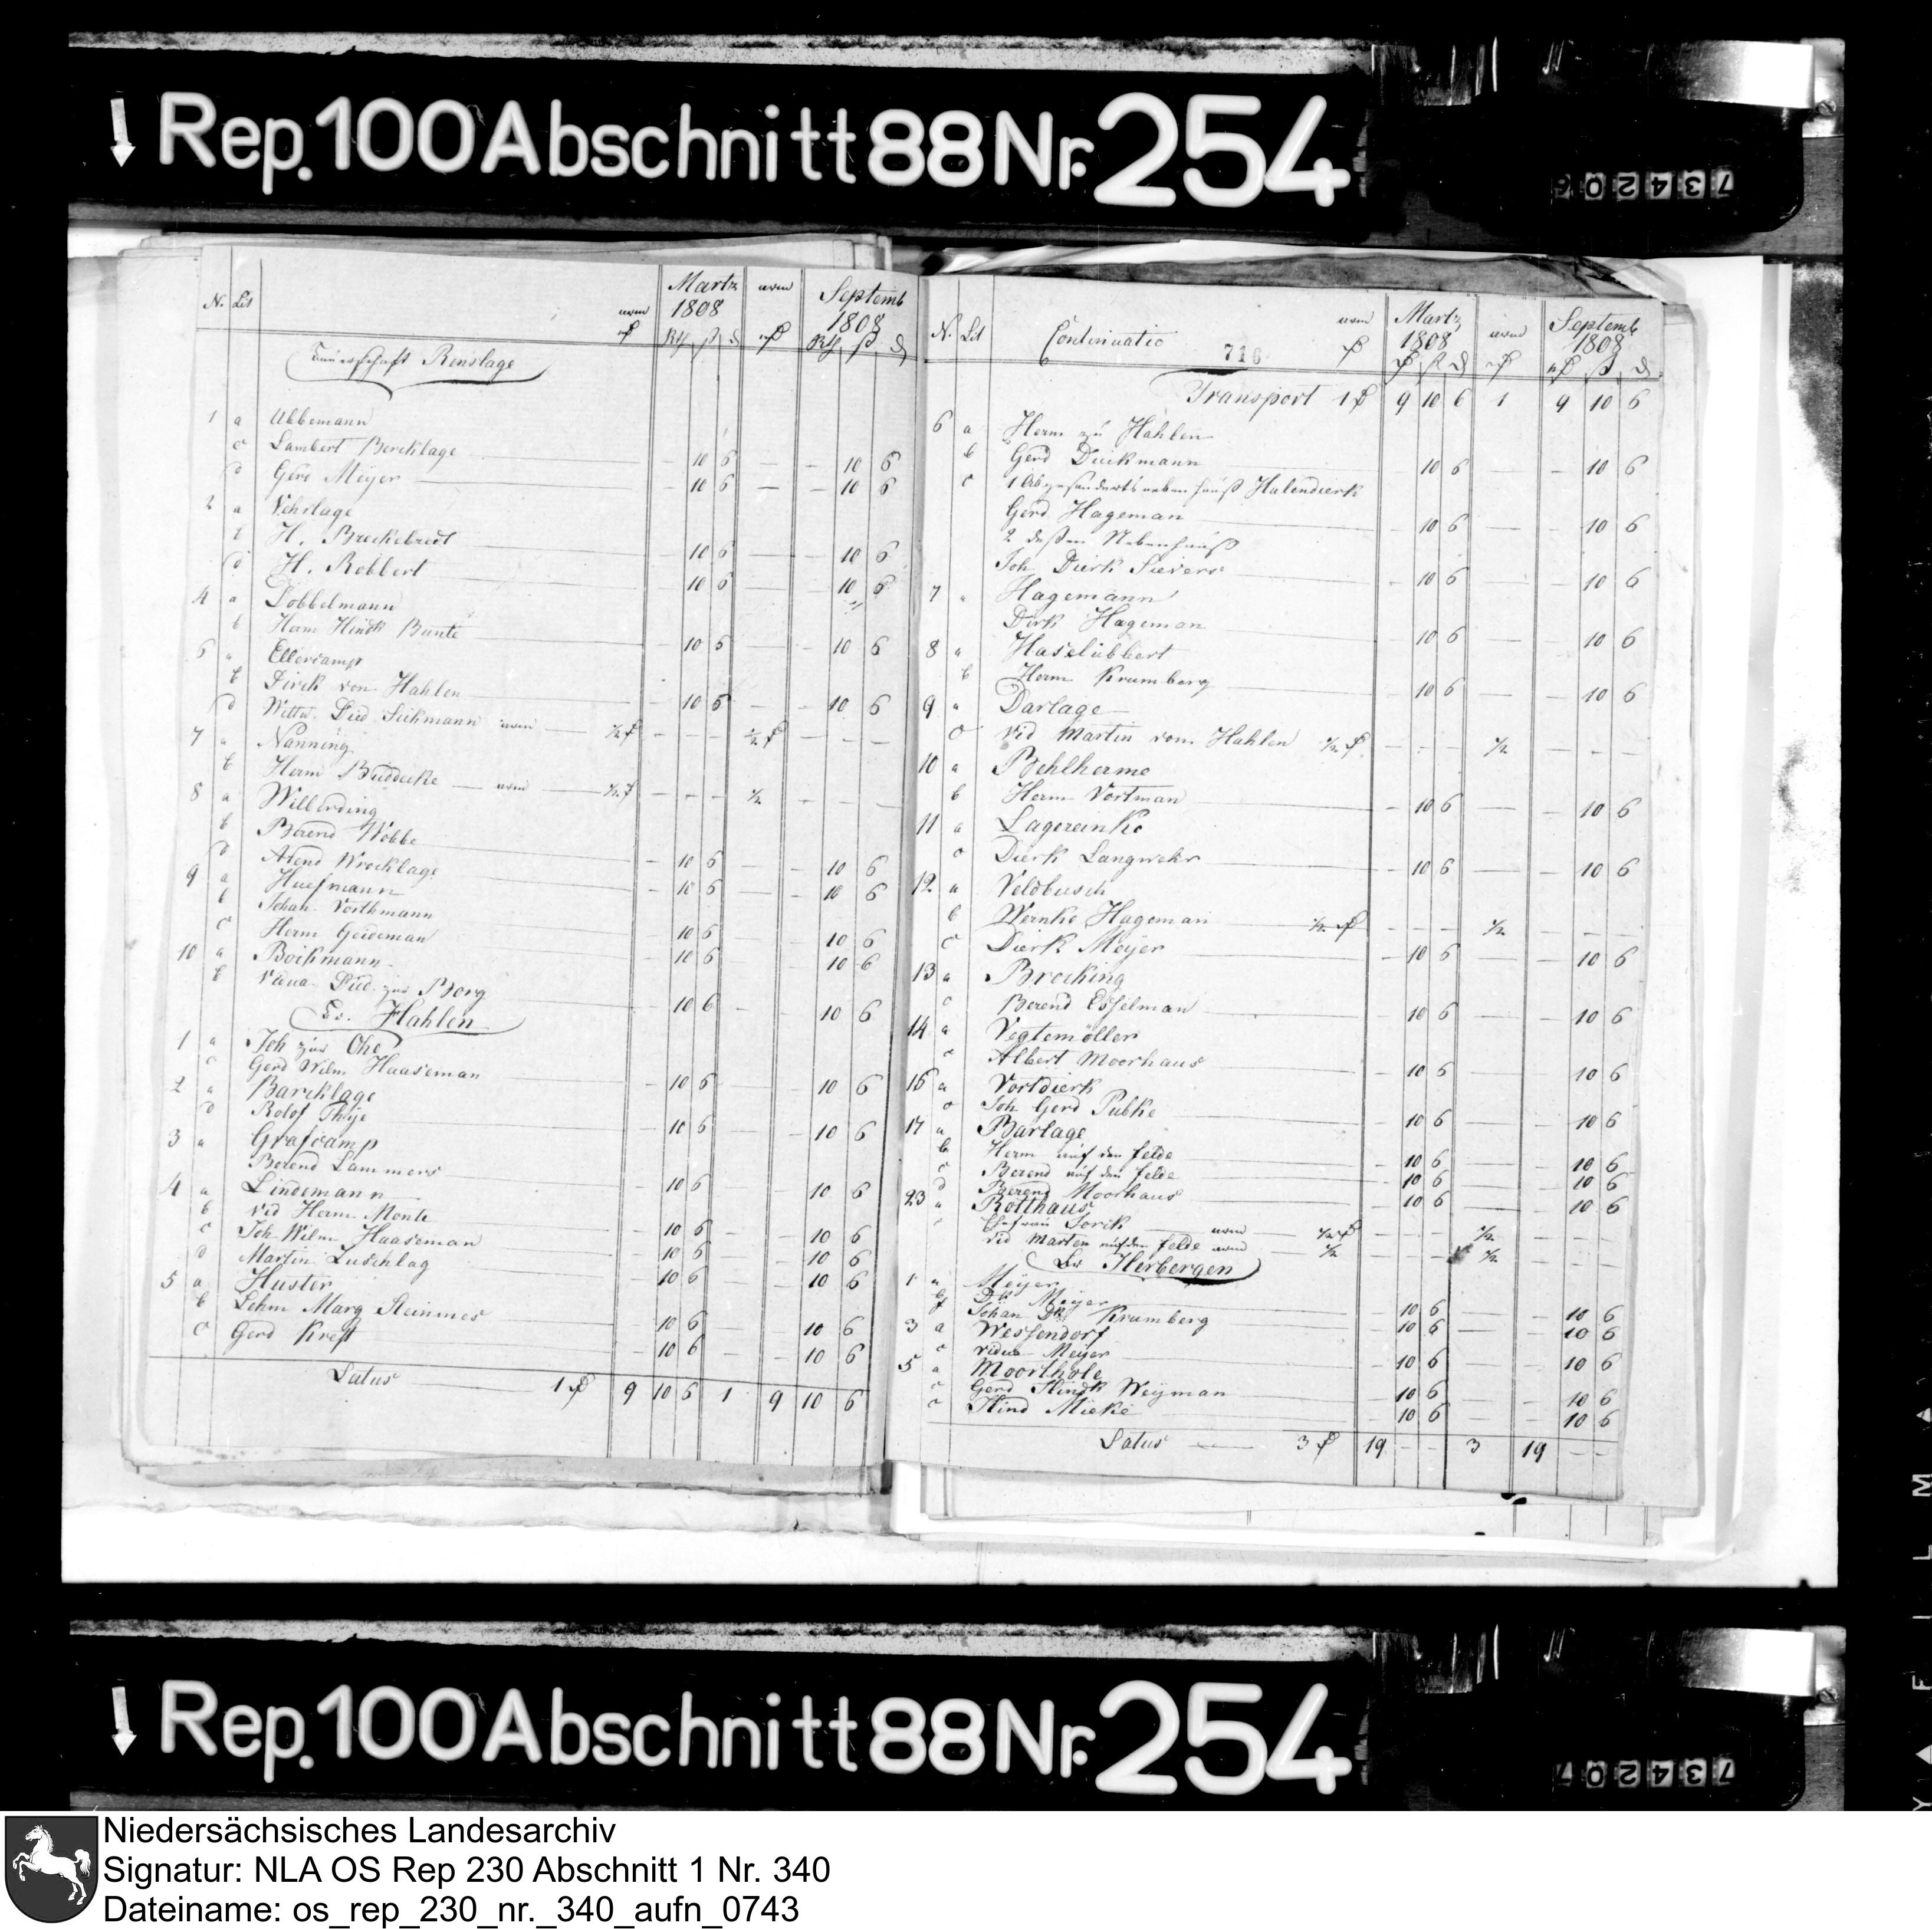 Rep. 100 Abschnitt 88 Nr. 254
734206
N. Lit Martz Septemb
1808 1808
Rth ß d Rth ß d
Bauerschaft Renslage
1 a Abbemann
c Lambert Bercklage 10 6 10 6
d Gerd Meijer 10 6 10 6
2 a Vehslage
H. Breckebredt 10 6 10 6
d H. Robbert 10 6 10 6
4 a Dobbelmann
b Herm Hindk Bunte 10 6 10 6
6 a Ellercamp
b Dirck von Hahlen 10 6 10 6
d Wittw. Lüd Siekmann arm ½ ½
7 a Nanning
b Herm Buddecke arm ½ ½
8 a Wilberding
b Berend Wobbe 10 6 10 6
d Arend Wrocklage 10 6 10 6
9 a Huesmann
b Johan Vorthmann 10 6 10 6
c Herm Geideman 10 6 10 6
10 a Böckmann
b Lüd. zur Borg 10 6 10 6
Bs. Hahlen
1 a Joh zur Ohe
c Gerd Wilm Haaseman 10 6 10 6
2 a Barcklage
d Rolof Thije 10 6 10 6
3 a Grafcamp
Berend Lammers 10 6 10 6
4 a Lindemann
b vid Herm Monte 10 6 10 6
c Joh Wilm Haaseman 10 6 10 6
d Martin Zuschlag 10 6 10 6
5 a Huster
b Marg Steinmes 10 6 10 6
c Gerd Kreft 10 6 10 6
Latus 1 9 10 6 1 9 10 6
N. Lit Continuatio 716 Martz Septemb
1808 1808
Transport 1 9 10 6 1 9 10 6
6 a Herm zu Hahlen
b Gerd Dieckmann 10 6 10 6
c 1 Abgesonderts nebenhauß Halendierk
Gerd Hageman 10 6 10 6
2 deßen Nebenhauß
Joh Dierk Sievers 10 6 10 6
7 Hagemann
Dirk Hageman 10 6 10 6
8 a Haselübbert
b Herm Krumberg 10 6 10 6
9 a Darlage
c vid Martin vom Hahlen ½ ½
10 a Behlherme
b Herm Vortman 10 6 10 6
11 a Lagereinke
c Dierk Langwehr 10 6 10 6
12 a Veldbusch
b Wernke Hageman ½ ½
c Dierk Meijer 10 6 10 6
13 a Brocking
c Berend Esselman 10 6 10 6
14 a Vegtemöller
c Albert Moorhaus 10 6 10 6
16 a Vortdierk
c Joh Gerd Pubke 10 6 10 6
17 a Bartage
b Herm auf den felde 10 6 10 6
c Berend auf den felde 10 6 10 6
d Berend Moorhaus 10 6 10 6
23 a Rotthaus
Ehefrau Sorik arm ½ ½
vid Marten auf den felde arm ½ ½
Bs Herbergen
1 a Meijer
b Dk Meijer 10 6 10 6
f Johan Dk Krumberg 10 6 10 6
3 a Wessendorf
c vidua Meijer 10 6 10 6
5 a Moorthole
c Gerd Hindk Weijman 10 6 10 6
c Hind Mieke 10 6 10 6
Latus 3 19 3 19
Rep. 100 Abschnitt 88 Nr. 254
734207
Niedersächsisches Landesarchiv
Signatur: NLA OS Rep 230 Abschnitt 1 Nr. 340
Dateiname: os_rep_230_nr._340_aufn_0743